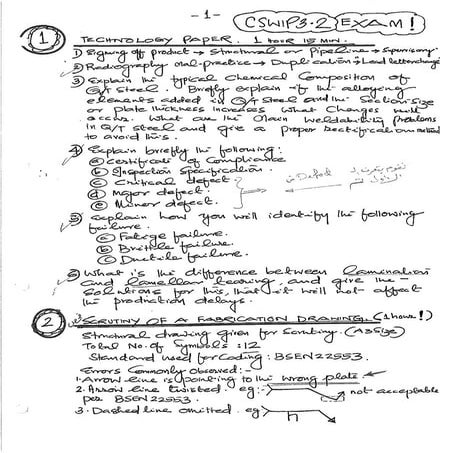 - 1 -
CSWIP3.2 EXAM!
1 TECHNOLOGY PAPER. 1 HOUR 15 MIN.
1) Signing off product → Structural or Pipeline → Supervisory.
2) Radiography mal-practice → Duplication → Lead letter change
3) Explain the typical Chemical Composition of
Q/T Steel. Briefly explain if the alloying
elements added in Q/T Steel and the Section size
or plate thickness increases What Changes will
occurs. What are the Main Weldability Problems
in Q/T steel and give a proper Rectification method
to avoid this.
4) Explain briefly the following:
a) Certificate of Compliance
b) Inspection Specification.
c) Critical defect
d) Major defect.
e) Minor defect.
5) Explain how you will identify the following
failure.
a) Fatige failure.
b) Brittle failure.
c) Ductile failure.
6) What is the difference between lamination
and lamellar tearing, and give the
Solutions for this, that it will not affect
the production delays.
2 SCRUTINY OF A FABRICATION DRAWING. (1 hour!)
Structural drawing given for Scrutiny. (A3 Size)
Total No. of Symbols : 12
Standard used for coding : BSEN22553.
Errors Commonly observed :-
1. Arrow line is pointing to the wrong plate
2. Arrow line twisted. eg:- not acceptable
per BSEN 22553.
3. Dashed line omitted. eg:-